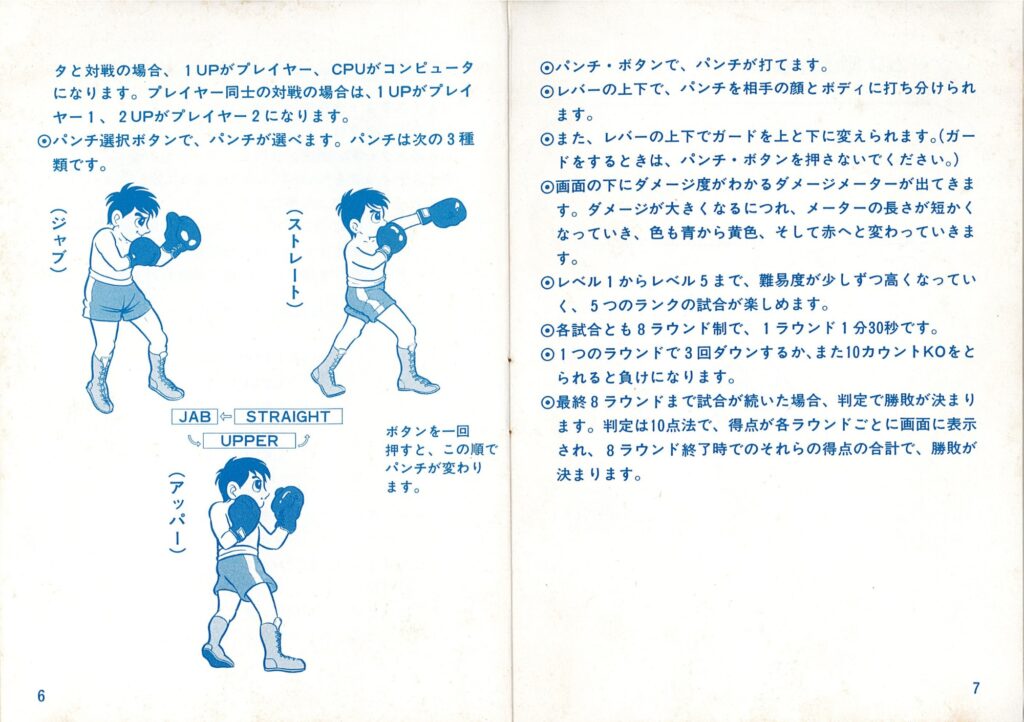 タと対戦の場合、1UPがプレイヤー、CPUがコンピュータ
になります。プレイヤー同士の対戦の場合は、1UPがプレイ
ヤー1、2UPがプレイヤー2になります。
⦿パンチ選択ボタンで、パンチが選べます。パンチは次の3種
類です。
(ジャブ)
(ストレート)
JAB ⇦ STRAIGHT
UPPER
ボタンを一回
押すと、この順で
パンチが変わり
ます。
(アッパー)
6
⦿パンチ・ボタンで、パンチが打てます。
⦿レバーの上下で、パンチを相手の顔とボディに打ち分けられ
ます。
⦿また、レバーの上下でガードを上と下に変えられます。(ガー
ドをするときは、パンチ・ボタンを押さないでください。)
⦿画面の下にダメージ度がわかるダメージメーターが出てきま
す。ダメージが大きくなるにつれ、メーターの長さが短かく
なっていき、色も青から黄色、そして赤へと変わっていきま
す。
⦿レベル1からレベル5まで、難易度が少しずつ高くなってい
く、5つのランクの試合が楽しめます。
⦿各試合とも8ラウンド制で、1ラウンド1分30秒です。
⦿1つのラウンドで3回ダウンするか、また10カウントKOをと
られると負けになります。
⦿最終8ラウンドまで試合が続いた場合、判定で勝敗が決まり
ます。判定は10点法で、得点が各ラウンドごとに画面に表示
され、8ラウンド終了時でのそれらの得点の合計で、勝敗が
決まります。
7